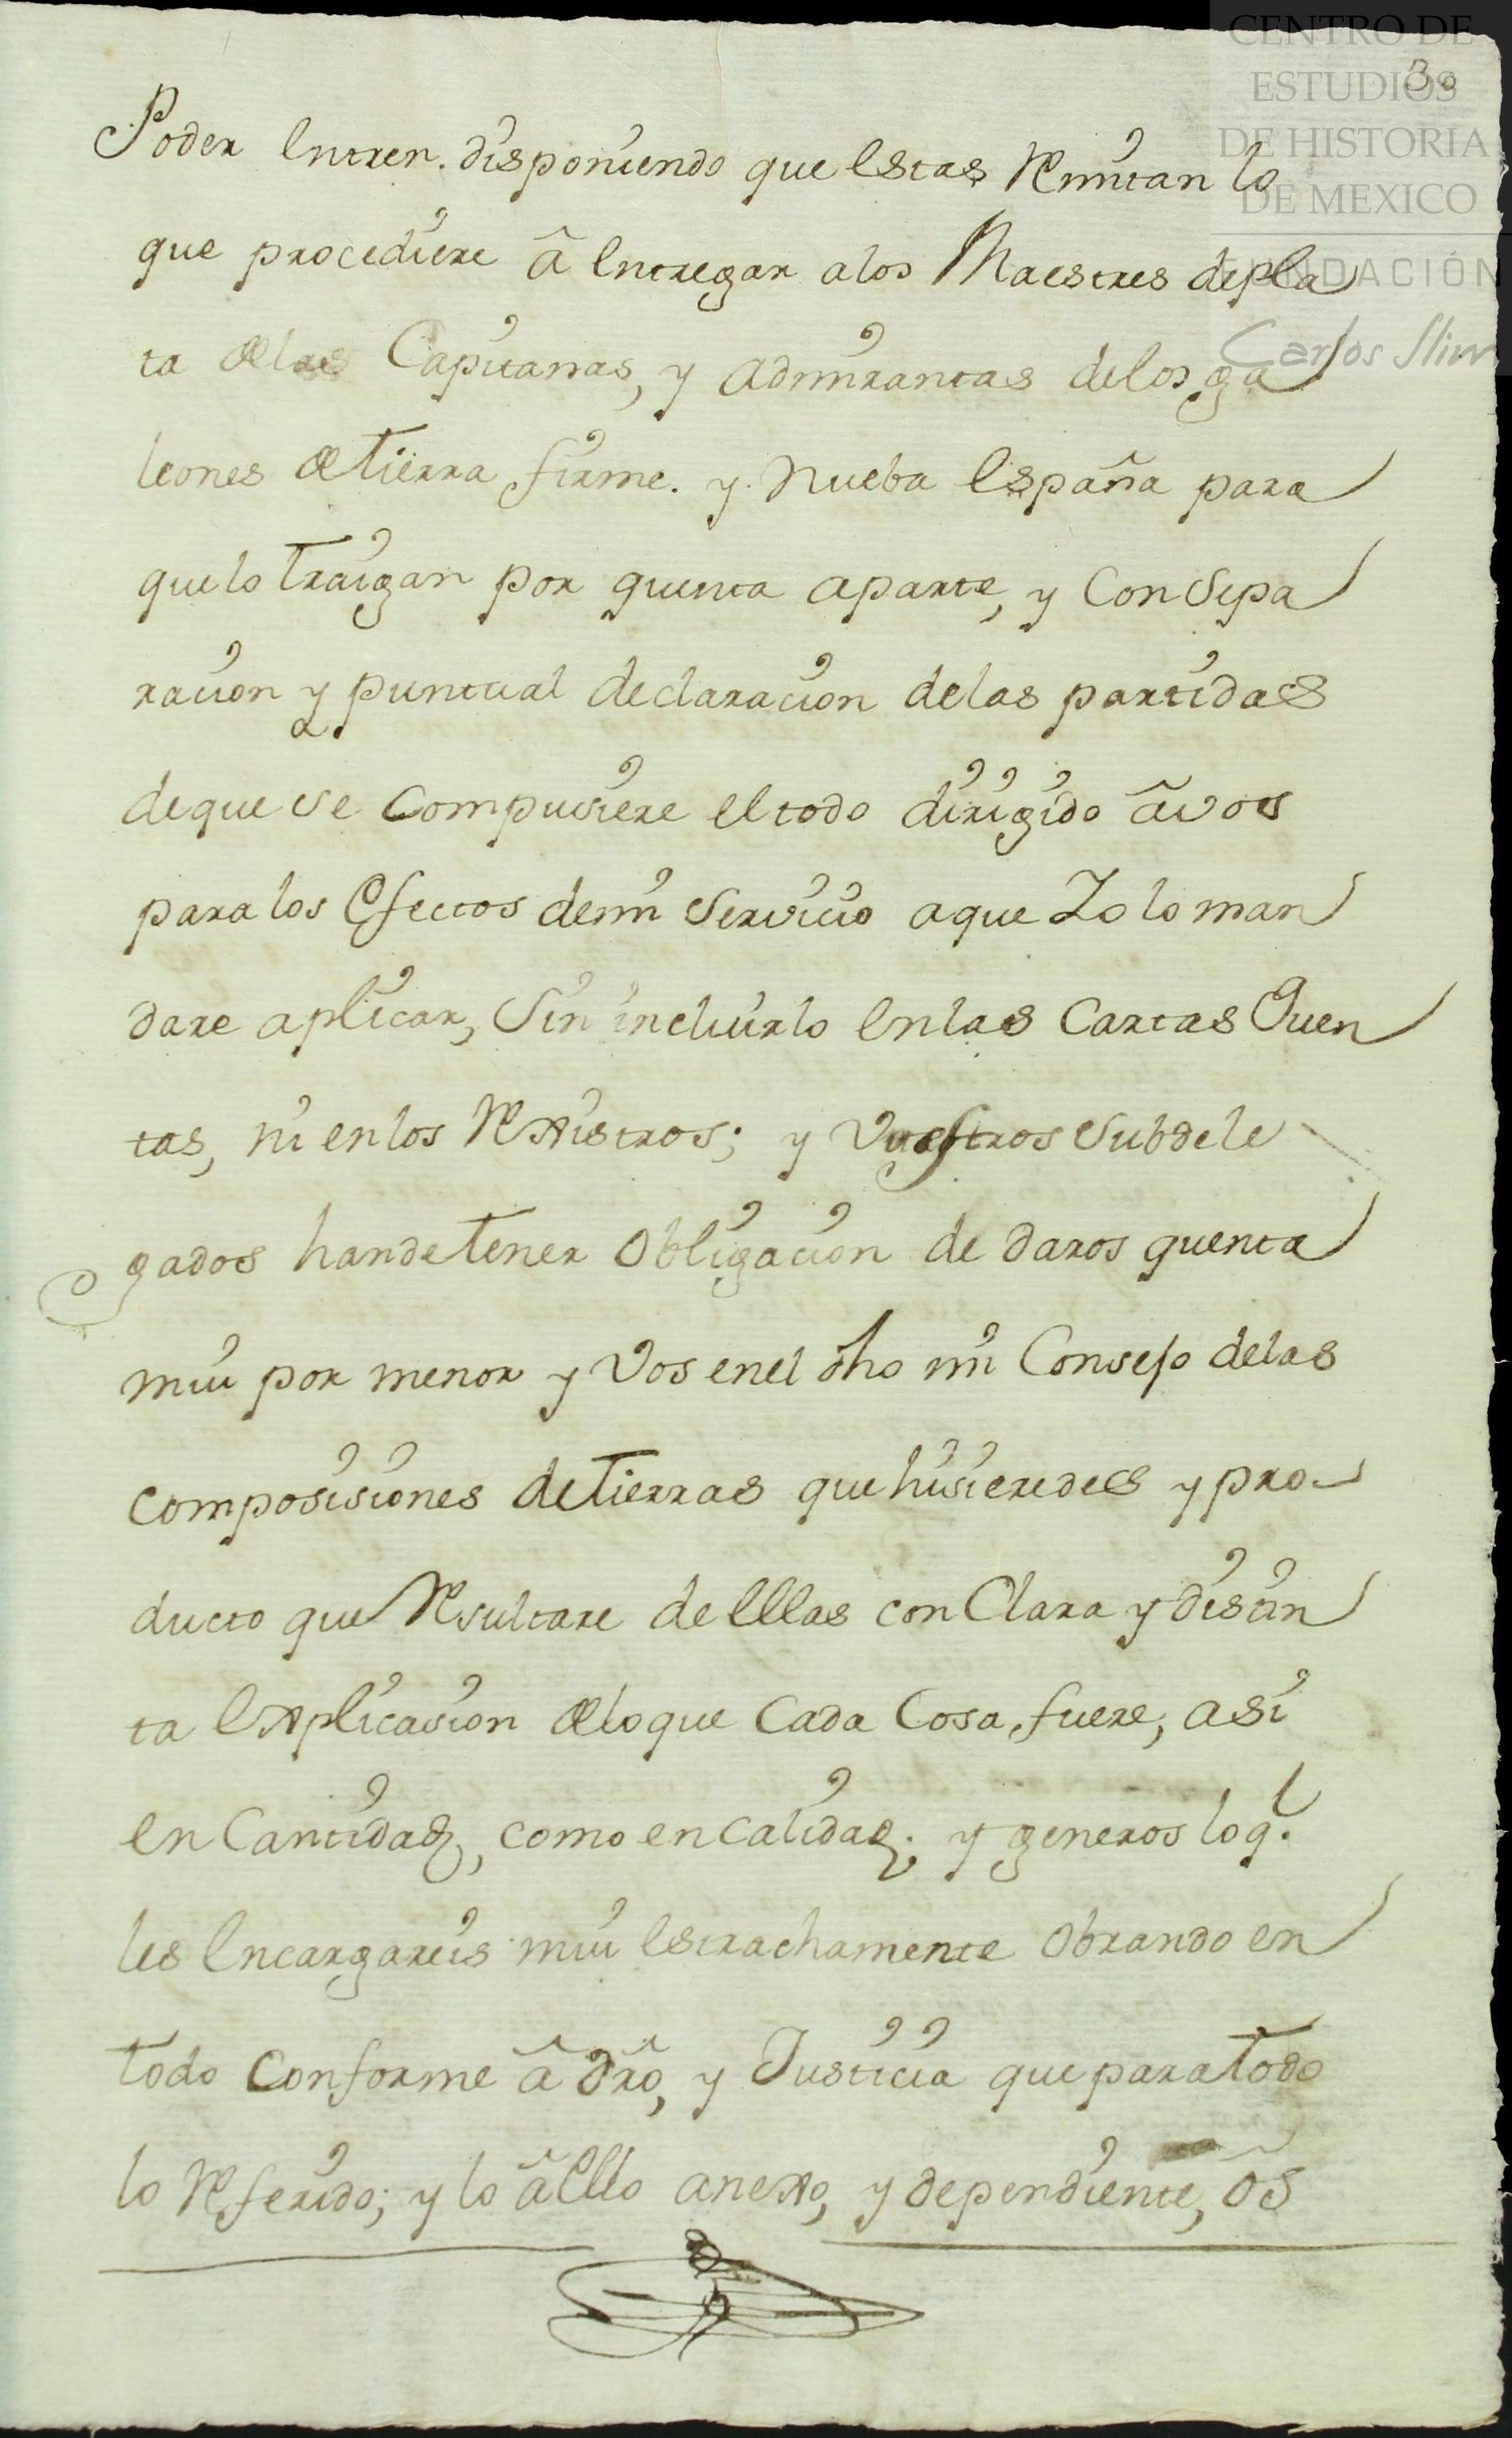 CENTRO DE
ESTUDIOS
DE HISTORIA
DE MEXICO
FUNDACIÓN
Carlos Slim
30
Poder entren. disponiendo que estas Remitan lo
que procediere â entregar a los Maestres de pla
ta de las Capitanas, y Admirantas de los ga
leones de Tierra firme. y Nueba España para
que lo Traigan por quenta aparte, y con sepa
racion y puntual declaracion de las partidas
de que se compusiere el todo dirigido â vos
para los efectos de mi servicio a que Yo lo man
dare aplicar, sin incluirlo en las Cartas Quen
tas, ni en los Rexistros; y Vuestros Subdele
gados han de Tener obligacion de daros quenta
mui por menor y Vos en el dho mi Consejo de las
composisiones de Tierras que hisieredes y pro-
ducto que Resultare de ellas con Clara y distin
ta explicasion de lo que cada cosa fuere, asi
en Cantidad, como en calidad; y generos lo q.e
les encargareis mui estrachamente obrando en
todo conforme â dr̃o, y Justicia que para Todo
lo Referido; y lo â ello anexo, y dependiente, os